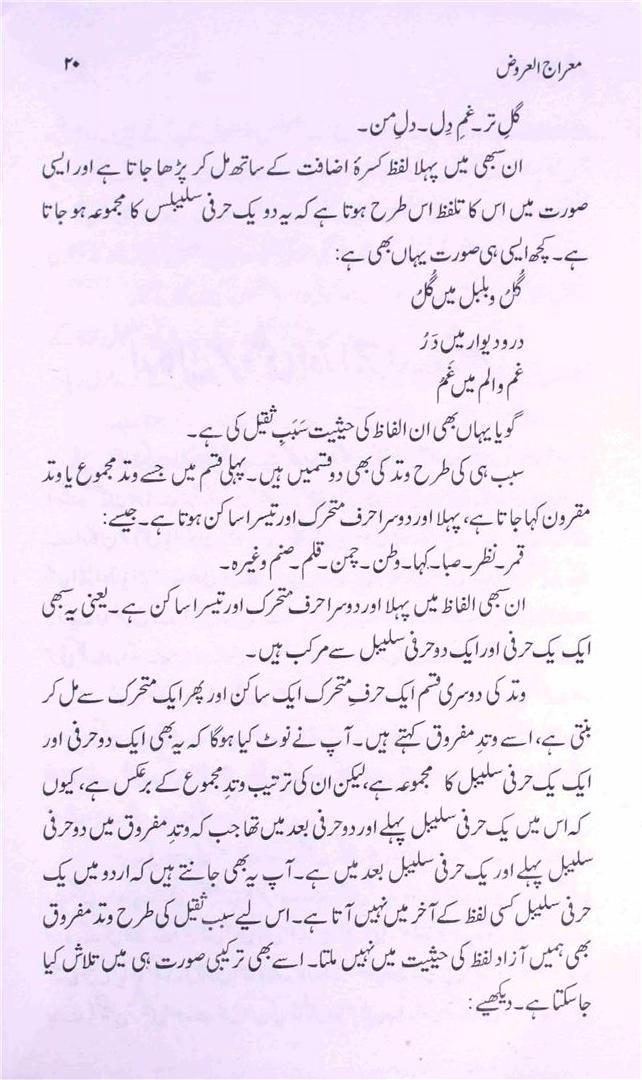 معراج العروض ۲۰
گلِ تر۔ غمِ دِل۔ دلِ من۔
ان سبھی میں پہلا لفظ کسرۂ اضافت کے ساتھ مل کر پڑھا جاتا ہے اور ایسی
صورت میں اس کا تلفظ اس طرح ہوتا ہے کہ یہ دو یک حرفی سلیبلس کا مجموعہ ہو جاتا
ہے۔ کچھ ایسی ہی صورت یہاں بھی ہے:
گُلُ و بلبل میں گُلُ
در و دیوار میں دَرُ
غم و الم میں غَمُ
گویا یہاں بھی ان الفاظ کی حیثیت سَبَبِ ثقیل کی ہے۔
سبب ہی کی طرح وتد کی بھی دو قسمیں ہیں۔ پہلی قسم میں جسے وتد مجموع یا وتد
مقرون کہا جاتا ہے، پہلا اور دوسرا حرف متحرک اور تیسرا ساکن ہوتا ہے۔ جیسے:
قمر۔ نظر۔ صبا۔ کہا۔ وطن۔ چمن۔ قلم۔ صنم وغیرہ۔
ان سبھی الفاظ میں پہلا اور دوسرا حرف متحرک اور تیسرا ساکن ہے۔ یعنی یہ بھی
ایک یک حرفی اور ایک دو حرفی سلیبل سے مرکب ہیں۔
وتد کی دوسری قسم ایک حرفِ متحرک ایک ساکن اور پھر ایک متحرک سے مل کر
بنتی ہے، اسے وتدِ مفروق کہتے ہیں۔ آپ نے نوٹ کیا ہوگا کہ یہ بھی ایک دو حرفی اور
ایک یک حرفی سلیبل کا مجموعہ ہے، لیکن ان کی ترتیب وتدِ مجموع کے برعکس ہے، کیوں
کہ اس میں یک حرفی سلیبل پہلے اور دو حرفی بعد میں تھا جب کہ وتدِ مفروق میں دو حرفی
سلیبل پہلے اور یک حرفی سلیبل بعد میں ہے۔ آپ یہ بھی جانتے ہیں کہ اردو میں یک
حرفی سلیبل کسی لفظ کے آخر میں نہیں آتا ہے۔ اس لیے سبب ثقیل کی طرح وتد مفروق
بھی ہمیں آزاد لفظ کی حیثیت میں نہیں ملتا۔ اسے بھی ترکیبی صورت ہی میں تلاش کیا
جا سکتا ہے۔ دیکھیے: